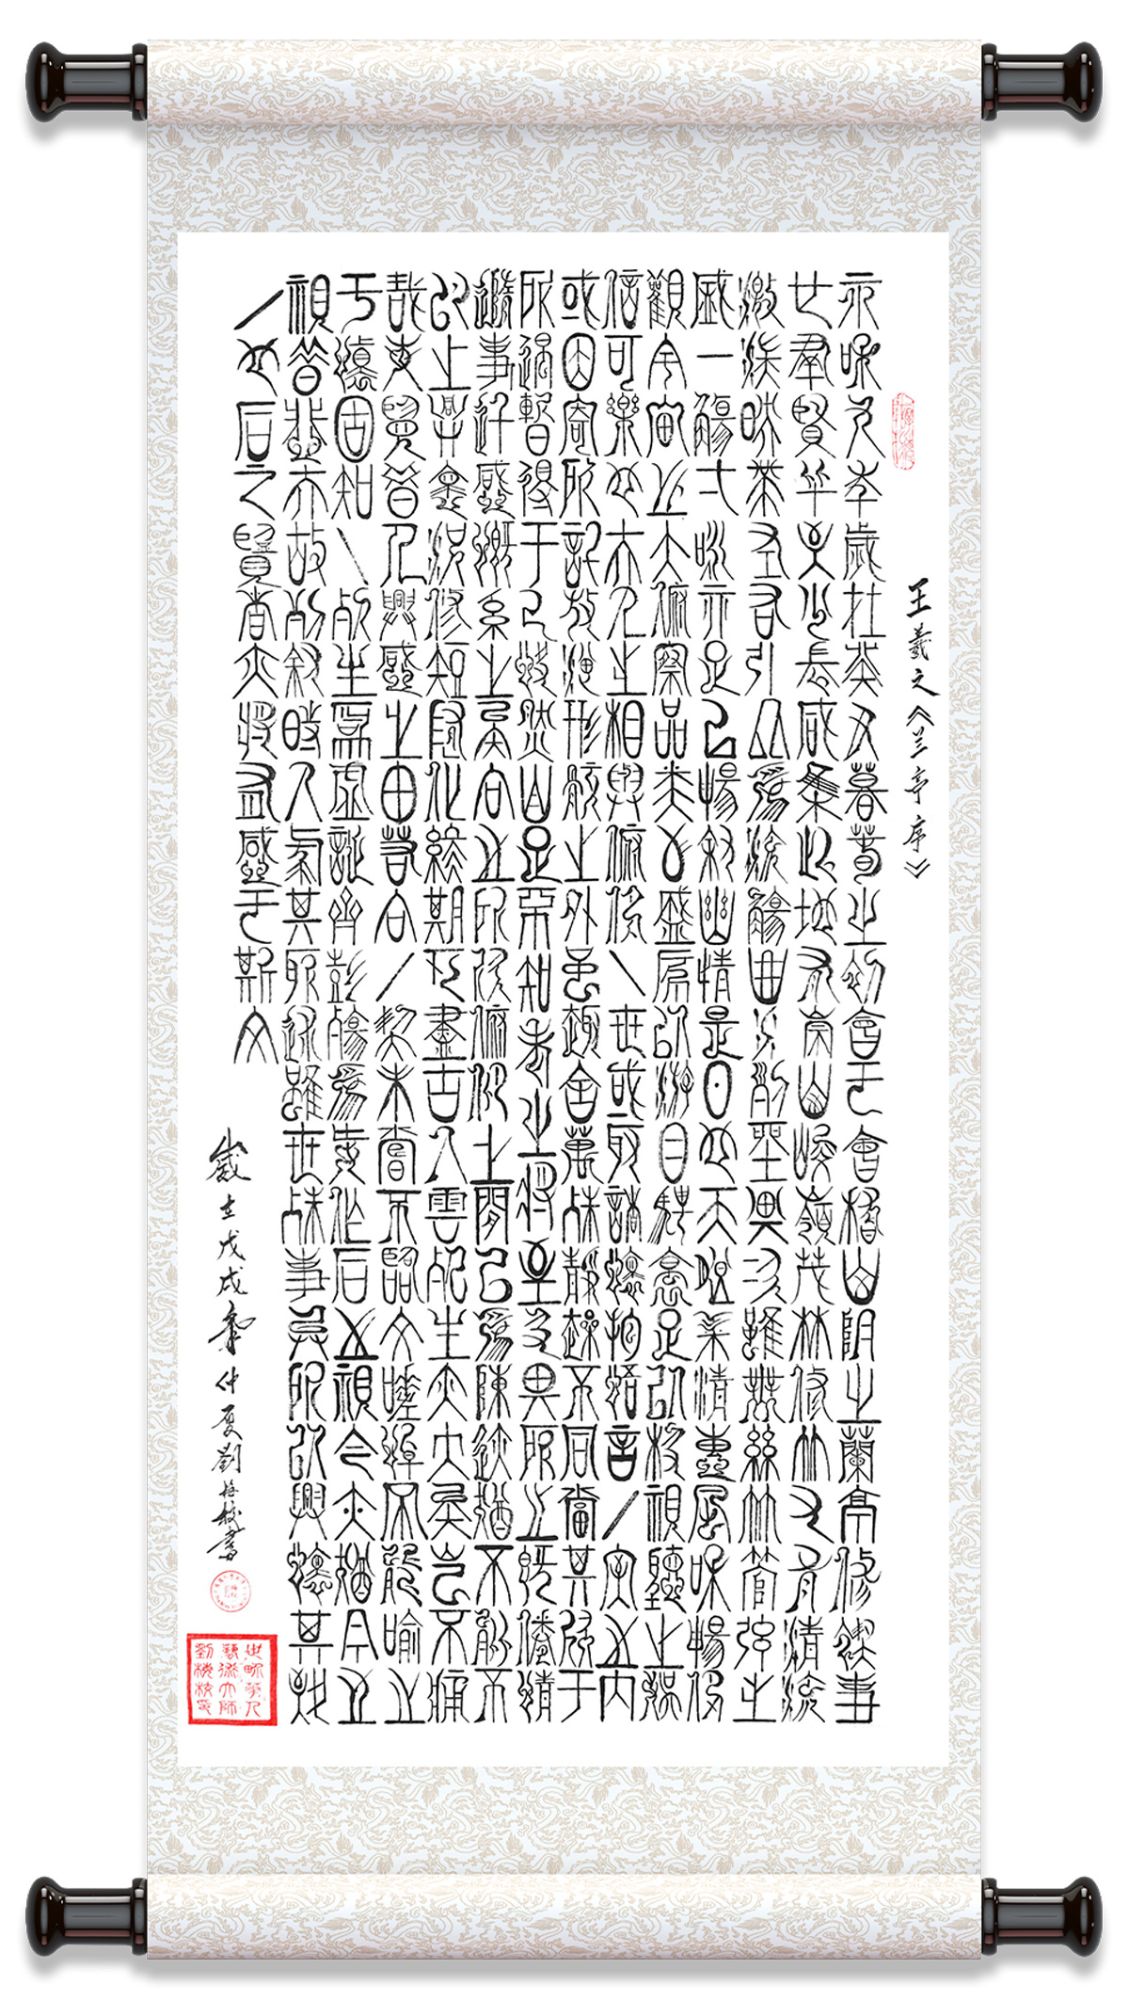 王羲之《兰亭序》
永和九年歲在癸丑暮春之初會于會稽山陰之蘭亭修禊事
也羣賢畢至少長咸集此地有崇山峻嶺茂林修竹又有清流
激湍映帶左右引以為流觴曲水列坐其次雖無絲竹管弦之
盛一觴一詠亦足以暢敘幽情是日也天朗氣清惠風和暢仰
觀宇宙之大俯察品類之盛所以游目騁懷足以極視聽之娛
信可樂也夫人之相與俯仰一世或取諸懷抱悟言一室之內
或因寄所託放浪形骸之外雖趣舍萬殊靜躁不同當其欣于
所遇暫得于己快然自足不知老之將至及其所之既倦情
隨事遷感慨系之矣向之所欣俯仰之間已為陳迹猶不能不
以之興懷況修短隨化終期于盡古人云死生亦大矣豈不痛
哉每覽昔人興感之由若合一契未嘗不臨文嗟悼不能喻之
于懷固知一死生為虛誕齊彭殤為妄作后之視今亦猶今之
視昔悲夫故列敘時人錄其所述雖世殊事異所以興懷其致
一也后之覽者亦將有感于斯文
歲在戊戌年仲夏劉